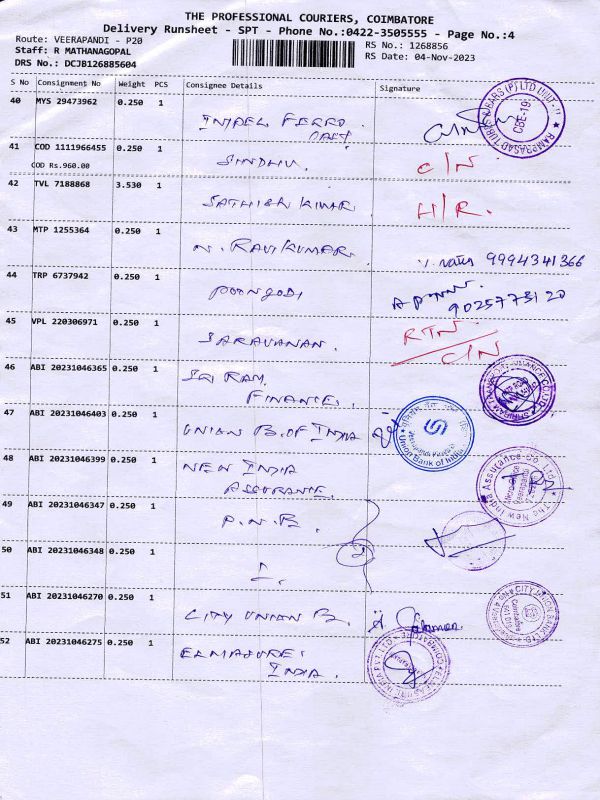 THE PROFESSIONAL COURIERS, COIMBATORE
Delivery Runsheet - SPT - Phone No.:0422-3505555 - Page No.:4
Route: VEERAPANDI - P20
RS No.: 1268856
Staff: R MATHANAGOPAL
RS Date: 04-Nov-2023
DRS No.: DCJB126885604
S No Consignment No Weight PCS Consignee Details Signature
40 MYS 29473962 0.250 1
INTPEL FERRO
CAST
RAMPRASAD TURBO GEARS (P) LTD UNIT-II
CBE-19
41 COD 1111966455 0.250 1
COD Rs.960.00
SINDHU
C/N
42 TVL 7188868 3.530 1
SATHISH KUMAR
H/R.
43 MTP 1255364 0.250 1
N. RAVIKUMAR
9994341366
44 TRP 6737942 0.250 1
POONGODI
9025773120
45 VPL 220306971 0.250 1
SARAVANAN.
RTN
C/N
46 ABI 20231046365 0.250 1
SRI RAM
FINANCE.
47 ABI 20231046403 0.250 1
UNION B. OF INDIA
Union Bank of India
48 ABI 20231046399 0.250 1
NEW INDIA
ASSURANCE.
The New India Assurance Co. Ltd.
49 ABI 20231046347 0.250 1
P.N.B.
50 ABI 20231046348 0.250 1
51 ABI 20231046270 0.250 1
CITY UNION B.
52 ABI 20231046275 0.250 1
ELMASURE
INDIA.